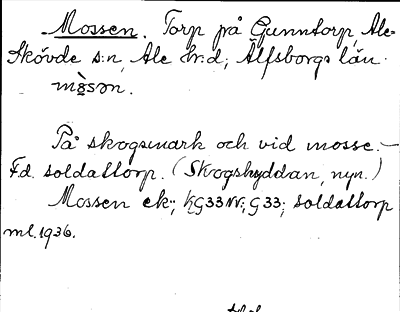 Mossen. Torp på Gunntorp, Ale-
Skövde s:n, Ale hr.d; Älfsborgs län.
mòsən.
På skogsmark och vid mosse.—
F.d. soldattorp. (Skogshyddan, nyn.)
Mossen ek.; KG33NV; G33; soldattorp
ml. 1936.